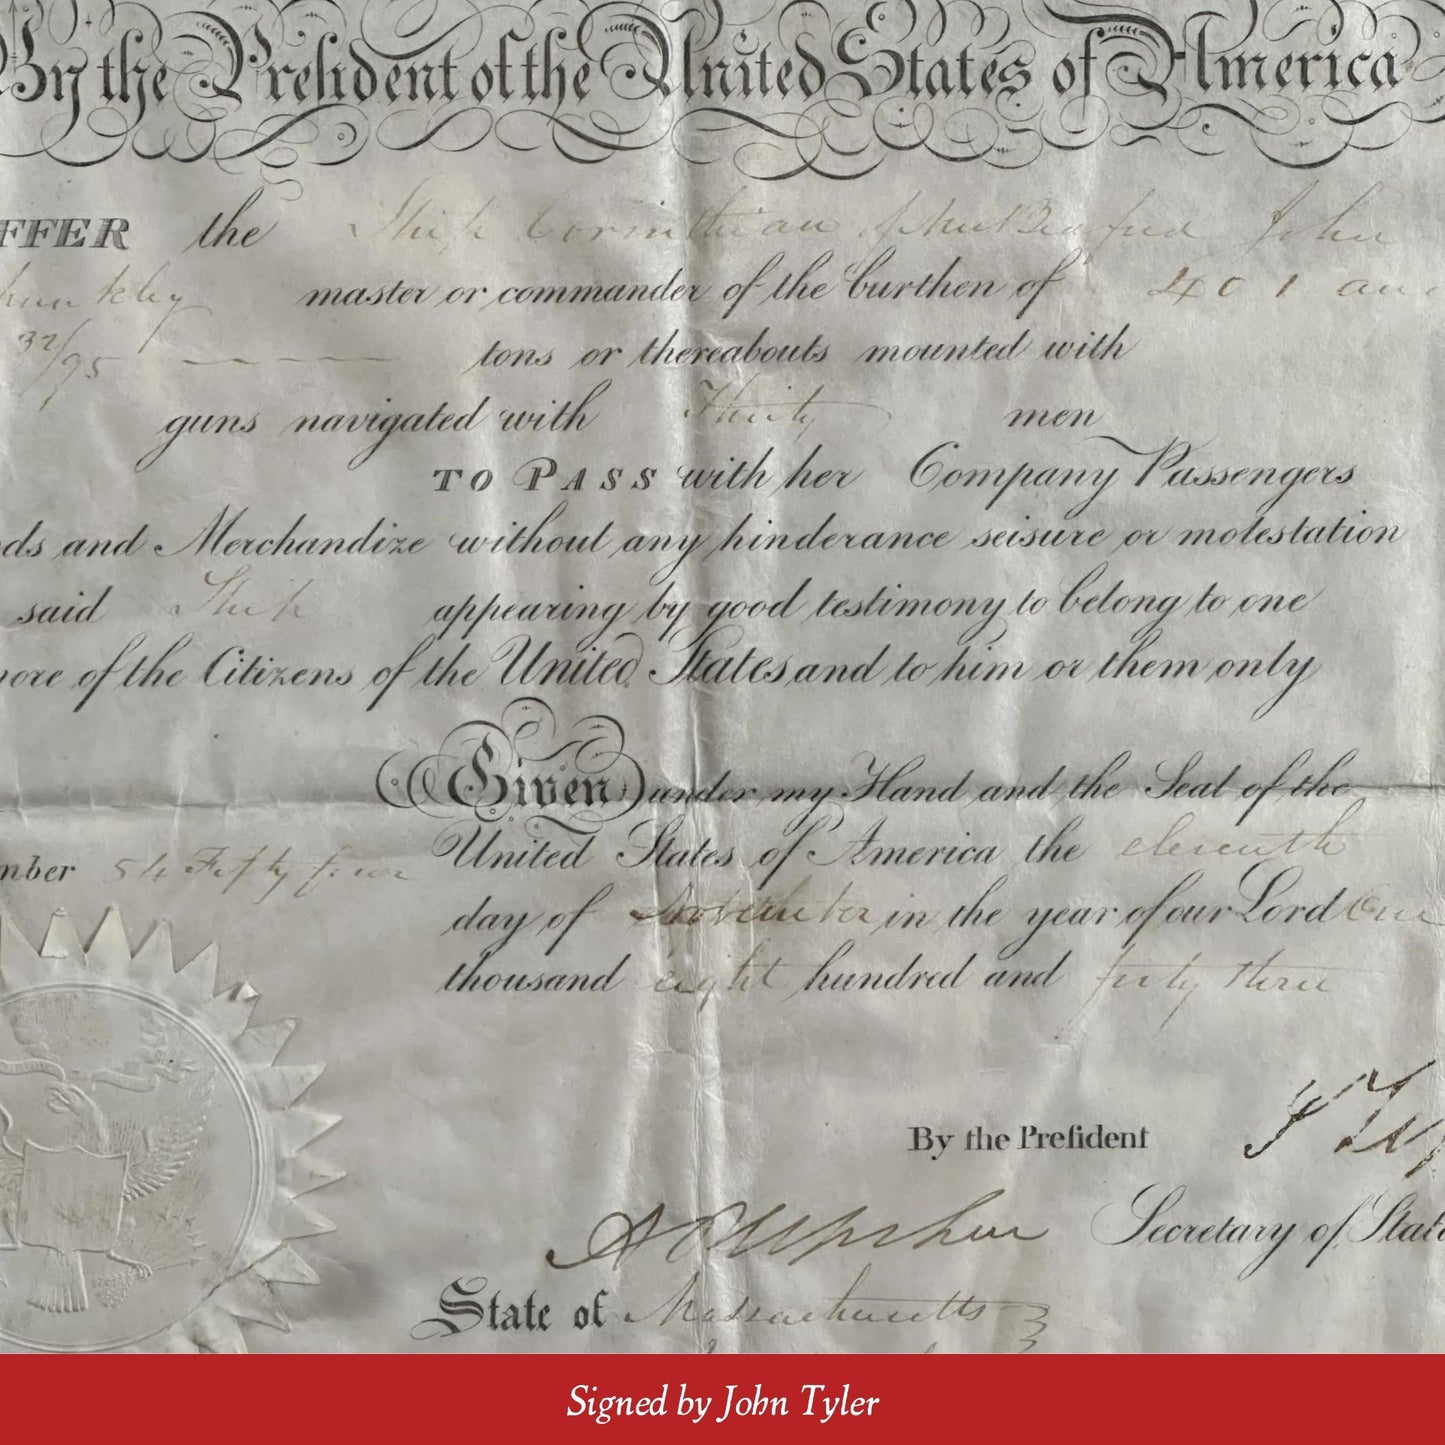 By the President of the United States of America
FFER the Ship Corinthian of New Bedford John
master or commander of the burthen of 401 and
32/95 tons or thereabouts mounted with
guns navigated with Thirty men
TO PASS with her Company Passengers
ds and Merchandize without any hinderance seisure or molestation
said Ship appearing by good testimony to belong to one
ore of the Citizens of the United States and to him or them only
Given under my Hand and the Seal of the
United States of America the eleventh
mber 54 Fifty four
day of November in the year of our Lord One
thousand eight hundred and forty three
By the President J Ty
A P Upshur Secretary of State
State of Massachusetts
Signed by John Tyler